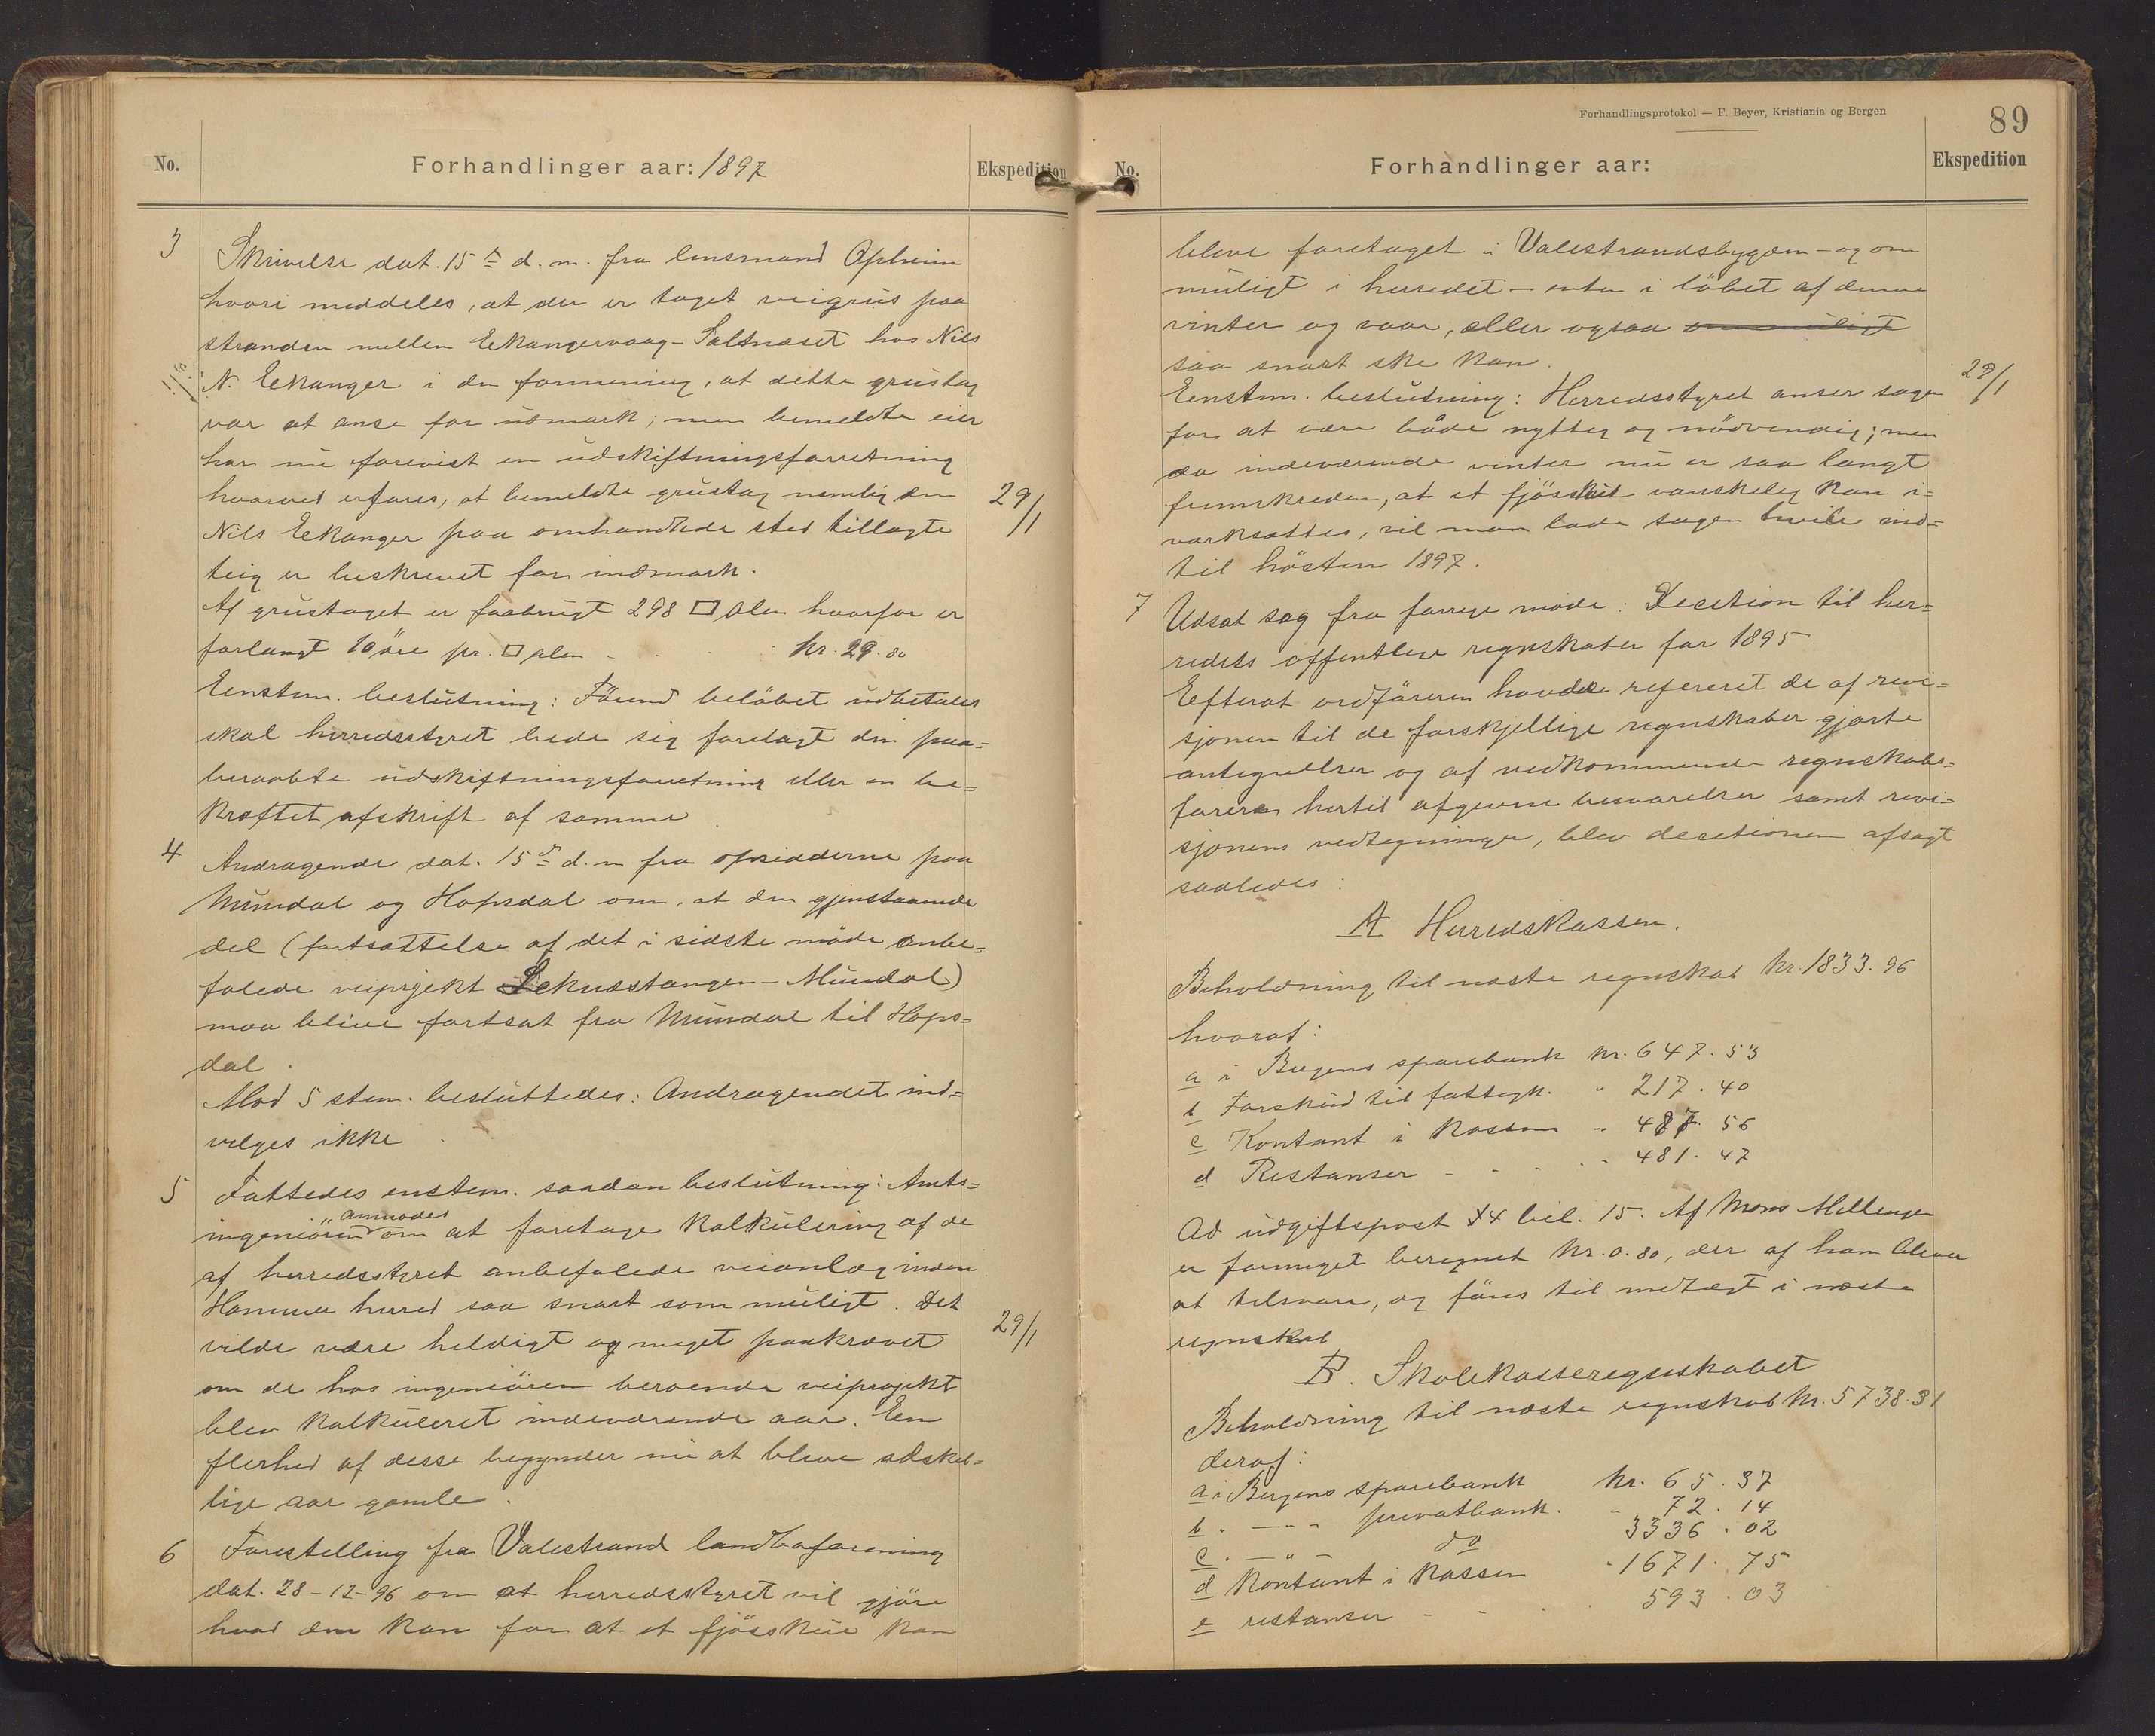 No.
Forhandlinger aar: 1897
Ekspedition
3
Skrivelse dat. 15de d. m. fra lensmand Opheim
hvori meddeles, at der er taget veigrus paa
stranden mellem Eknangervaag - Saltnæset hos Nils
N. Eknanger i den formening, at dette grustag
var at anse for udmark; men bemeldte eier
har nu forevist en udskiftningsforretning
hvorved erfares, at bemeldte grustag nemlig den
Nils Eknanger paa omhandlede sted tillagte
teig er beskrevet for indmark.
29/1
Af grustaget er forbrugt 298 □ alen hvorfor er
forlangt 10 öre pr. □ alen - . . . kr. 29.80
Eenstem. beslutning: Förend belöbet udbetales
skal herredsstyret bede sig forelagt den paa=
beraabte udskiftningsforretning eller en be=
kræftet afskrift af samme.
4
Andragende dat. 15de d. m fra opsidderne paa
Mundal og Hopsdal om, at den gjenstaaende
del (fortsættelse af det i sidste möde anbe=
falede veiprojekt Leknæstangen - Mundal)
maa blive fortsat fra Mundal til Hops=
dal.
Mod 5 stem. besluttedes: Andragendet ind=
vilges ikke.
5
Fattedes enstem. saadan beslutning: Amts=
ingeniören anmodes om at foretage kalkulering af de
af herredsstyret anbefalede veianlæg inden
Hammer herred saa snart som muligt. Det
vilde være heldigt og meget paakrævet
29/1
om de hos ingeniören beroende veiprojekt
blev kalkuleret indeværende aar. Een
flerhed af disse begynder nu at blive adskil=
lige aar gamle.
6
Forestilling fra Valestrand landboforening
dat. 28-12-96 om at herredsstyret vil gjöre
hvad den kan for at et fjösskue kan
Forhandlingsprotokol — F. Beyer, Kristiania og Bergen
89
No.
Forhandlinger aar:
Ekspedition
blive foretaget i Valestrandsbygden - og om
muligt i herredet - enten i löbet af denne
vinter og vaar, eller ogsaa om muligt
saa snart ske kan.
Eenstem. beslutning: Herredsstyret anser sagen
29/1
for at være både nyttig og nödvendig; men
da indeværende vinter nu er saa langt
fremskreden, at et fjösskue vanskelig kan i=
værksættes, vil man lade sagen hvile ind=
til hösten 1897.
7
Udsat sag fra forrige möde: Decition til her=
redets offentlige regnskaber for 1895.
Efterat ordföreren havde refereret de af revi=
sjonen til de forskjellige regnskaber gjorte
antegnelser og af vedkommende regnskabs=
förere hertil afgivne besvarelser samt revi=
sjonens vedtegninger, blev decitionen afsagt
saaledes:
A Herredskassen.
Beholdning til næste regnskab kr. 1833.96
hvoraf:
a i Bergens sparebank kr. 647.53
b Forskud til fattigk. " 217.40
c Kontant i kassen " 487.56
d Restanser - - - " 481.47
Ad udgiftspost 14 bil. 15. Af Mons Mellingen
er formeget beregnet kr. 0.80, der af ham bliver
at tilsvare, og föres til indtægt i næste
regnskab
B. Skolekasseregnskabet
Beholdning til næste regnskab kr. 5738.31
deraf:
a i Bergens sparebank kr. 65.37
b " — " privatbank. " 72.14
c " — " do 3336.02
d Kontant i kassen " 1671.75
e restanser - - . 593.03